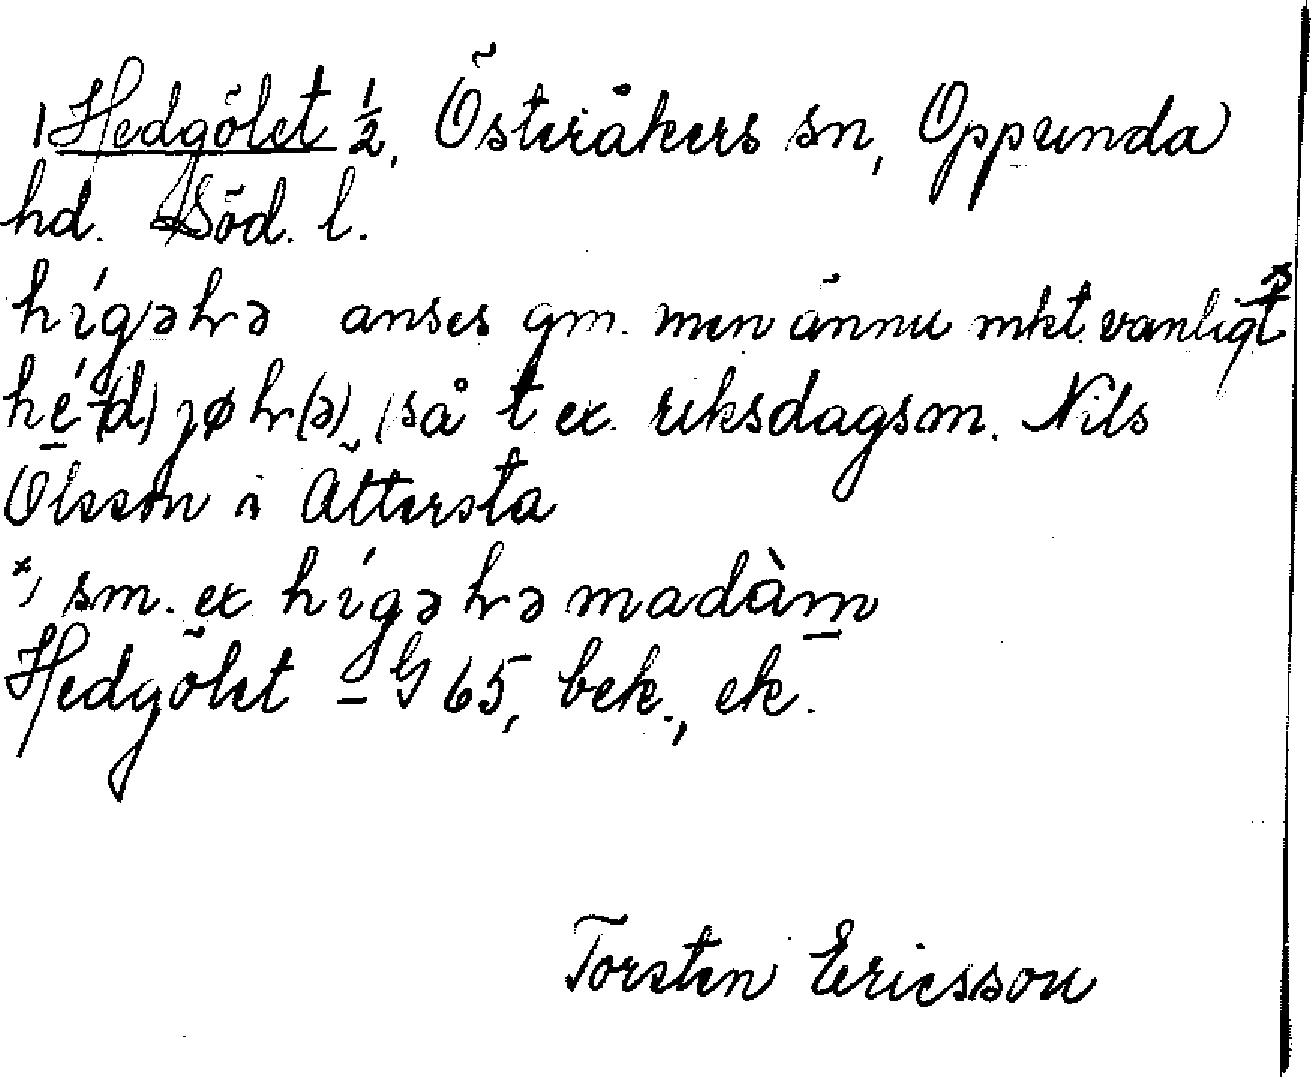 1 Hedgölet 1/2, Österåkers sn, Oppunda
hd. Söd. l.
hígəhrə anses gm. men ännu mkt vanligt x)
hé(d)jøhr(ə), (så t ex. riksdagsm. Nils
Olsson i Åttersta
x) sm. ex hígəhrə madàm
Hedgölet - G 65, bek., ek.
Torsten Ericsson